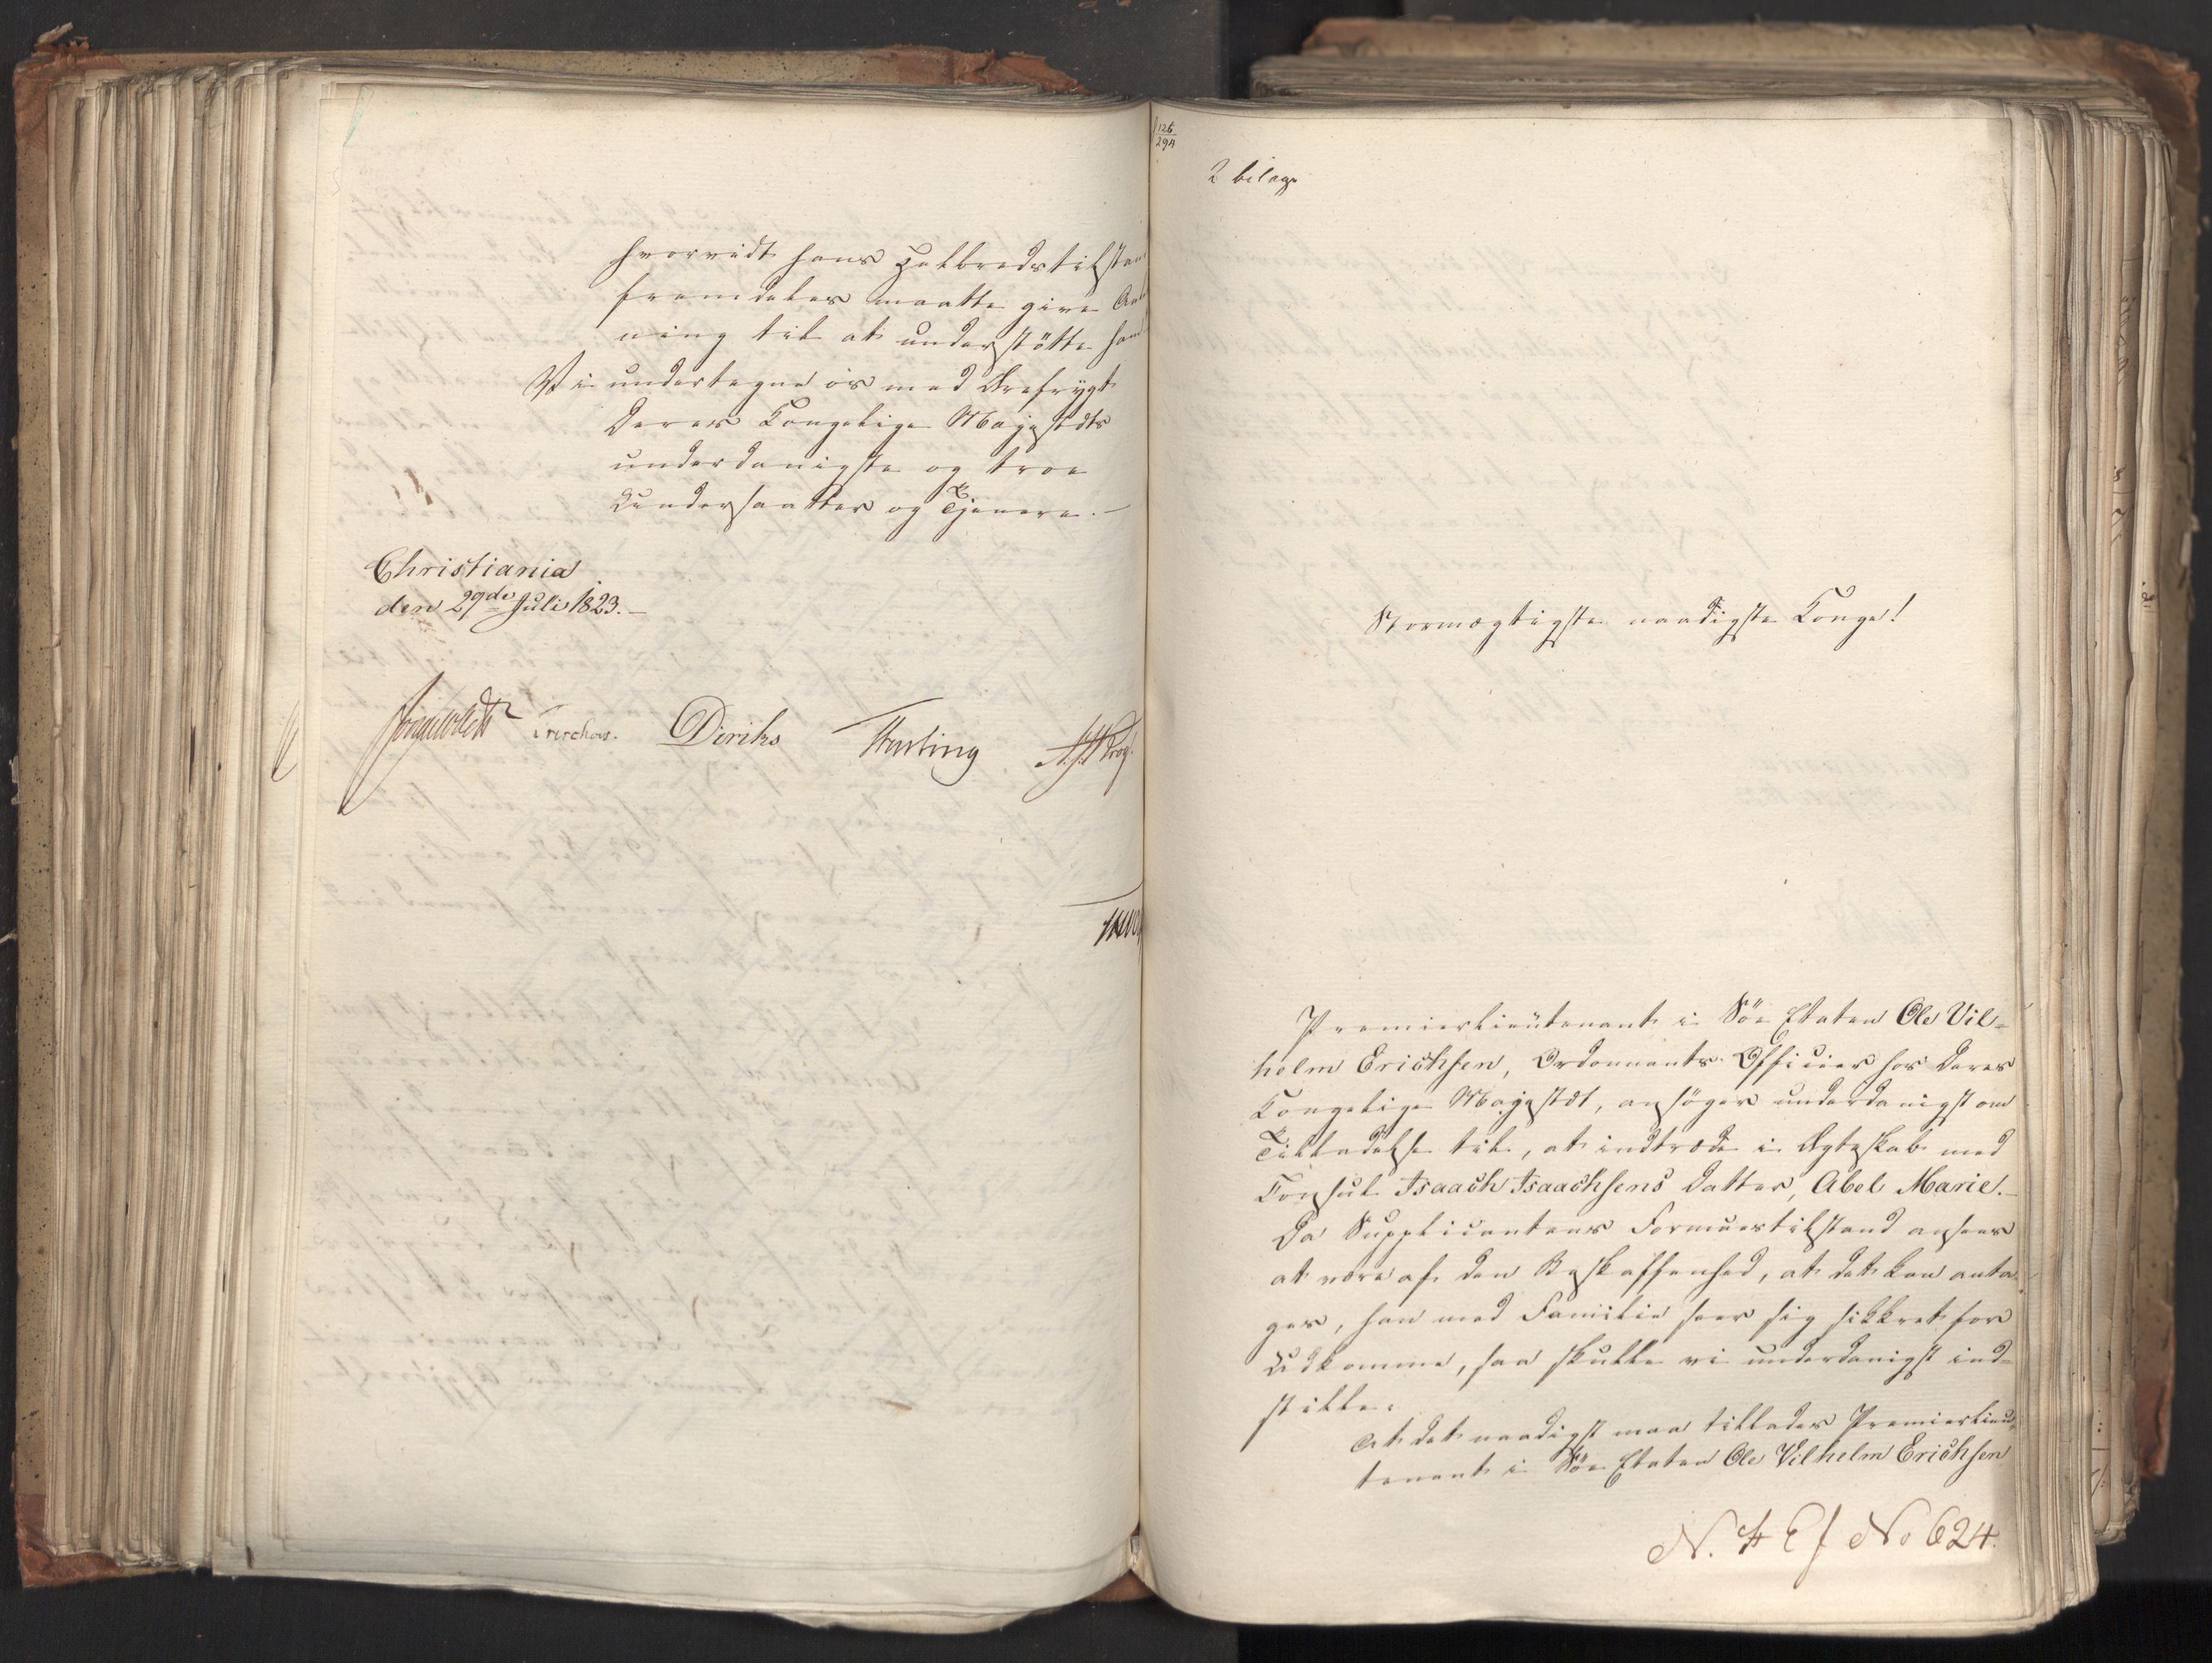 hvorvidt hans Helbredstilstan
fremdeles maatte give An
ning til at understötte ham
Vi undertegne os med Ærefrygt
Deres Kongelige Majestæts
underdanigste og troe
Undersaatter og Tjenere.–
Christiania
den 29de Juli 1823.–
Diriks
126
294
2 bilage
Stormægtigste naadigste Konge!
Premierlieutenant i Söe Etaten Ole Vil=
helm Erichsen, Ordonnants-Officier hos Deres
Kongelige Majestæt, ansöger underdanigst om
Tilladelse til, at indtræde i Ægteskab med
Consul Isaach Isaachsens Datter, Abel Marie.–
Da Supplicantens Formuestilstand ansees
at være af den Beskaffenhed, at det kan anta=
ges, han med Familie seer sig sikkret for
Udkomme, saa skulle vi underdanigst ind=
stille:
At det naadigst maa tillades Premierlieu=
tenant i Söe Etaten Ole Vilhelm Erichsen
No 624.